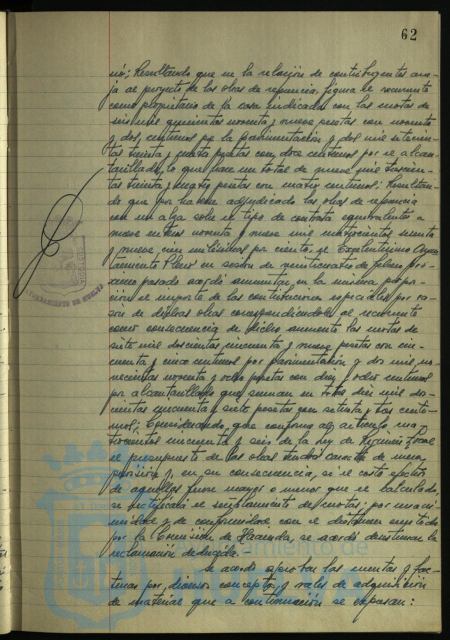 62
nió; Resultando que en la relación de contribuyentes ane-
ja al proyecto de las obras de referencia figura el recurrente
como propietario de la casa indicada con las cuotas de
seis mil quinientas noventa y nueve pesetas con noventa
y dos centimos por la pavimentación y dos mil setecien-
tas treinta y cuatro pesetas con doce centimos por el alcan-
tarillado, lo que hace un total de nueve mil trescien-
tas treinta y cuatro pesetas con cuatro centimos; Resultan-
do que por haberse adjudicado las obras de referencia
con un alza sobre el tipo de contrata equivalentes a
nueve enteros noventa y nueve mil cuatrocientos
y nueve cien milésimas por ciento, el Excelentísimo Ayun-
tamiento Pleno en sesión de veinticuatro de febrero pró-
ximo pasado acordó aumentar en la misma propor-
ción el importe de las contribuciones especiales por ra-
zón de dichas obras correspondiéndole al recurrente
como consecuencia de dicho aumento las cuotas de
siete mil doscientas cincuenta y nueve pesetas con cin-
cuenta y cinco centimos por pavimentación y dos mil no-
vecientas noventa y ocho pesetas con diez y ocho centimos
por alcantarillado que suman en total diez mil dos-
cientas cincuenta y siete pesetas con setenta y tres centi-
mos; Considerando, que conforme al artículo cua-
trocientos cincuenta y seis de la Ley de Régimen Local
el presupuesto de las obras tendrá caracter de mera
previsión y, en su consecuencia, si el coste efectivo
de aquellas fuese mayor o menor que el calculado,
se rectificará el señalamiento de cuotas; por unani-
midad y de conformidad con el dictamen emitido
por la Comisión de Hacienda, se acordó desestimar la
reclamación deducida.
Se acordó aprobar las cuentas y fac-
turas por diversos conceptos y vales de adquisición
de material que a continuación se expresan:
AYUNTAMIENTO DE HUELVA
Ayuntamiento de